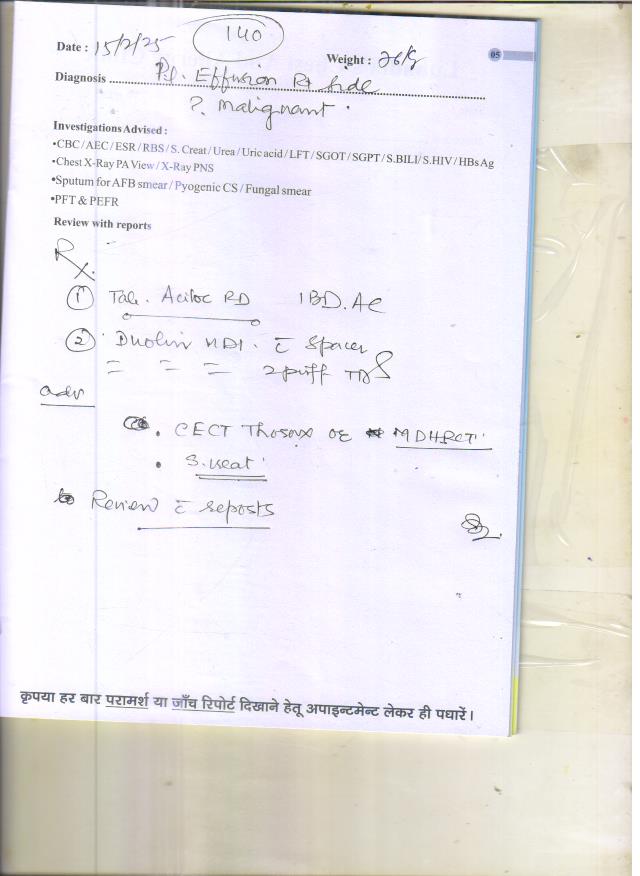 140
05
Date : 15/2/25 Weight : 26kg
Diagnosis Pl. Effusion Rt side
?. Malignant .
Investigations Advised :
•CBC / AEC / ESR / RBS / S. Creat / Urea / Uric acid / LFT / SGOT / SGPT / S.BILI / S.HIV / HBs Ag
•Chest X-Ray PA View / X-Ray PNS
•Sputum for AFB smear / Pyogenic CS / Fungal smear
•PFT & PEFR
Review with reports
Rx.
① Tab. Aciloc RD 1 BD. AC
② Duolin MDI. c̄ Spacer
= = = 2 puff TDS
adv
• CECT Thorax or MDHRCT
• S.
Review c̄ reports
कृपया हर बार परामर्श या जाँच रिपोर्ट दिखाने हेतू अपाइन्टमेन्ट लेकर ही पधारें ।